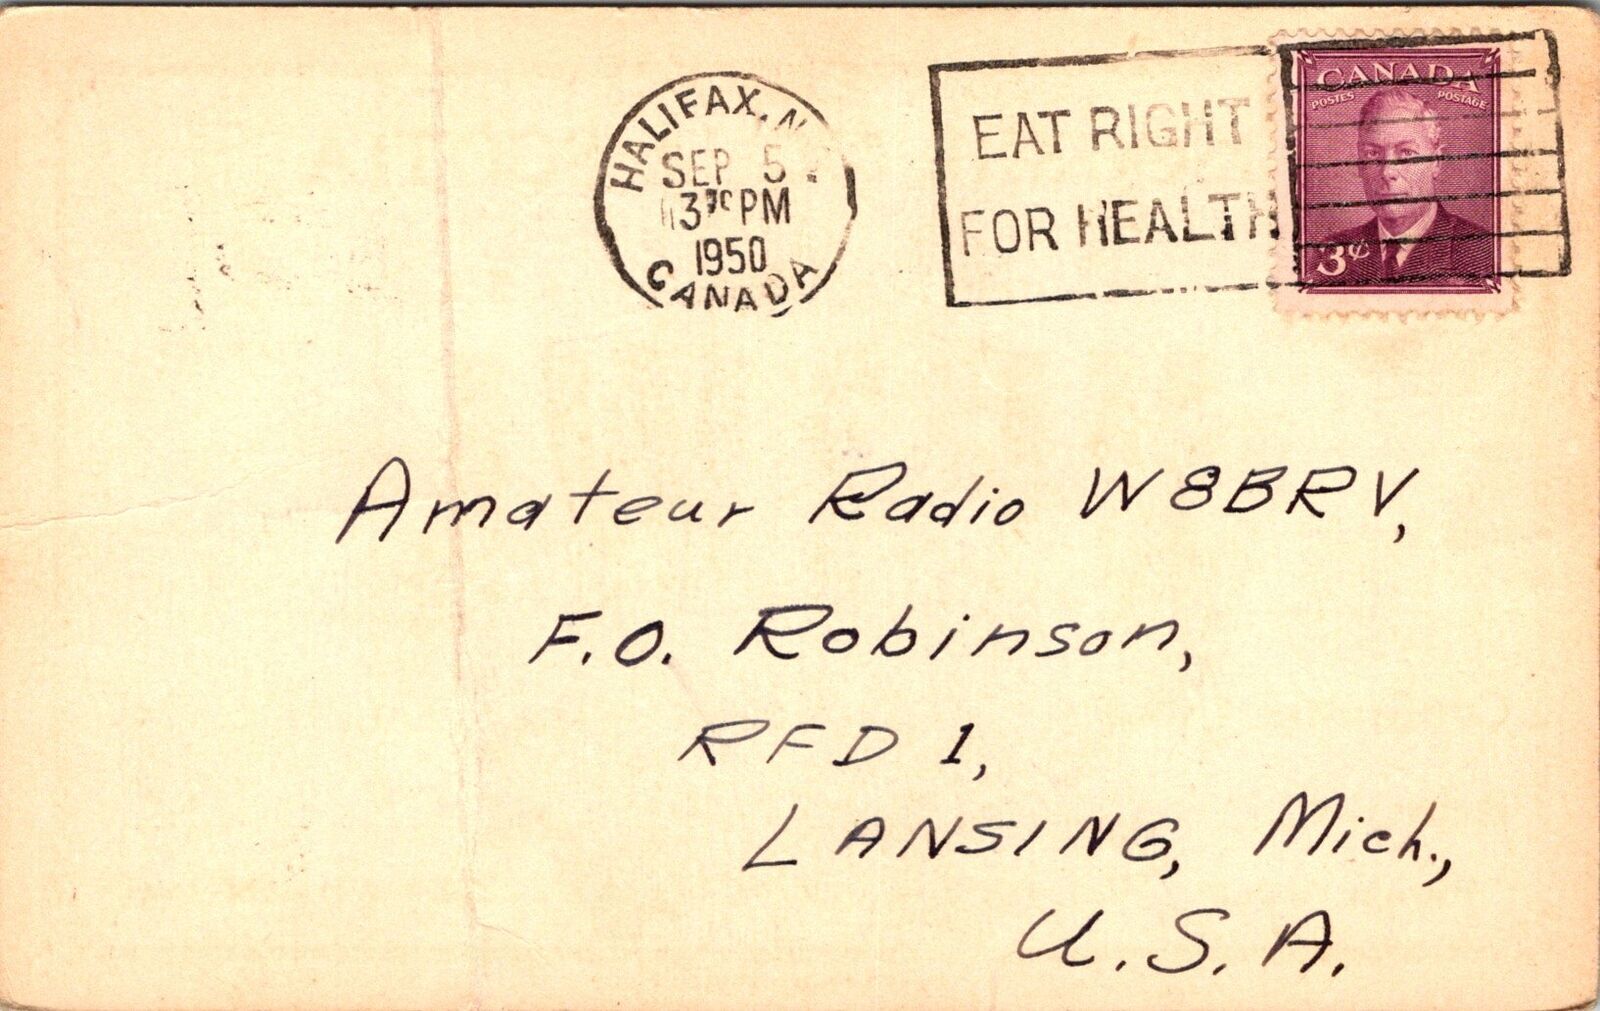 HALIFAX, N
SEP 5
PM
1950
CANADA
EAT RIGHT
FOR HEALTH
CANADA
POSTES POSTAGE
3¢
Amateur Radio W8BRV,
F.O. Robinson,
RFD 1,
LANSING, Mich.,
U.S.A.